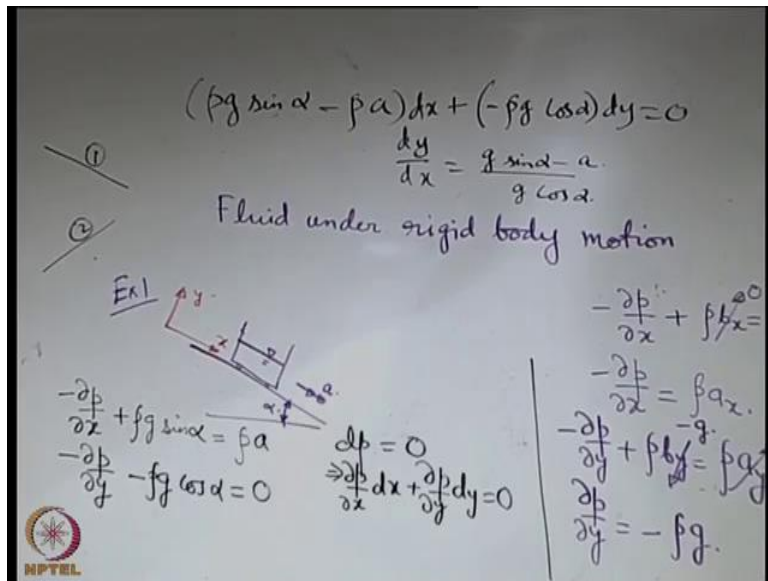 (ρg sin α − ρa)dx + (−ρg cosα)dy = 0
dy/dx = (g sinα − a.)/(g cos α.)
①
②
Fluid under rigid body motion
Ex1
y.
x
a.
α.
−∂p/∂x + ρg sinα = ρa
−∂p/∂y − ρg cosα = 0
dp = 0
⇒ ∂p/∂x dx + ∂p/∂y dy = 0
−∂p/∂x + ρbx 0 =
−∂p/∂x = ρax.
−∂p/∂y + ρby −g. = ρay
∂p/∂y = − ρg.
NPTEL